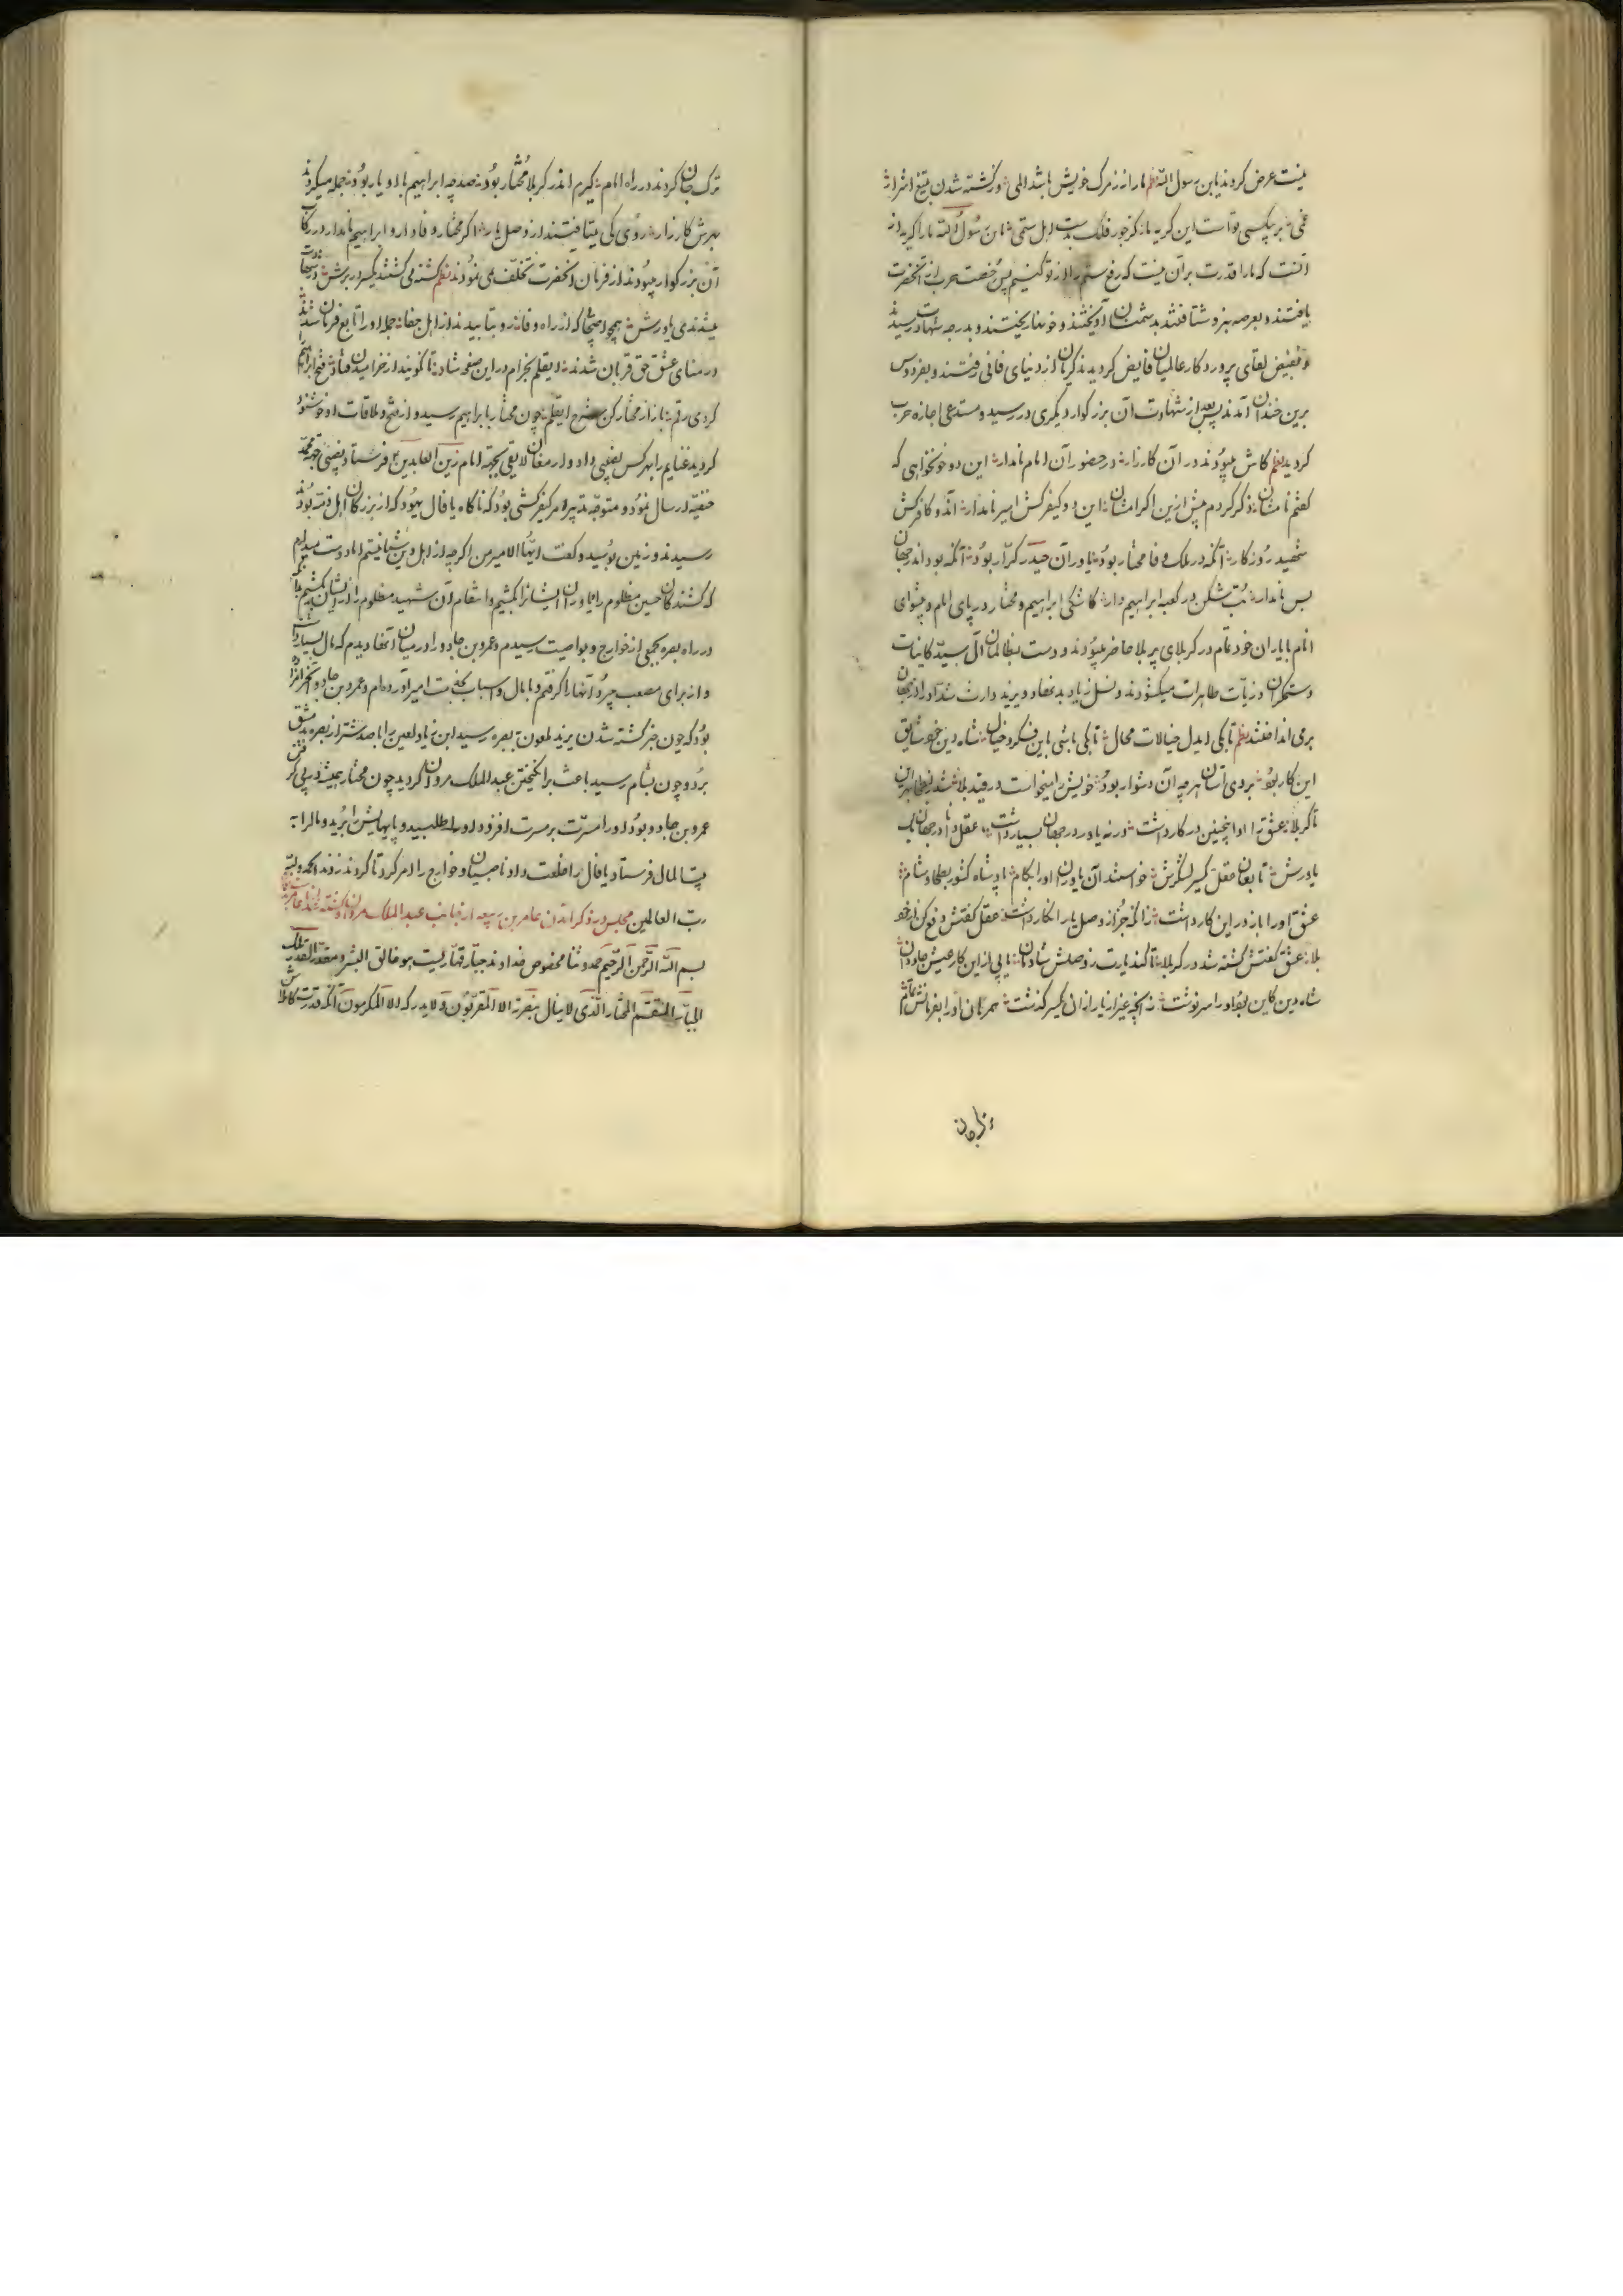 نیست عرض کردند یابن رسول الله نظم ما را نز مرگ خویش باشد المی وز کشته شدن بتیغ اشرار
غمی بر بیکسی تو است این گریه ما کز جور فلک بدست اهل ستمی یابن رسول الله ما را گریه از
آنست که ما را قدرت بر آن نیست که رفع ستم را از تو کنیم پس رخصت حرب از آنحضرت
یافتند و بعرصه نبرد شتافتند بدشمنان آویختند و خونها ریختند و بدرجه شهادت رسیدند
و بفیض لقای پروردگار عالمیان فایض گردیدند گریان از دنیای فانی رفتند و بفردوس
برین خندان آمدند پس بعد از شهادت آن بزرگوار دیگری در رسید و مستدعی اجازه حرب
گردید نظم کاش میبودند در آن کارزار در حضور آن امام نامدار این دو خونخواهی که
گفتم نامشان ذکر کردم پیش ازین اکرامشان این دو کیفرکش امیر نامدار آندو کافرکش
شهید روزگار آنکه در ملک وفا مختار بود یاور آن حیدر کرار بود آنکه بود اندر جهان
بس نامدار بت شکن در کعبه ابراهیم وار کاشکی ابراهیم و مختار در پای امام و پیشوای
انام با یاران خود تمام در کربلای پر بلا حاضر میبودند و دست ظالمان آل سید کاینات
و ستمگران ذریات طاهرات میگشودند و نسل زیاد بدنهاد و یزید
بر می انداختند نظم تا بکی ایدل خیالات محال تا بکی باشی باین فکر و خیال شاه دین خود شایق
این کار بود بروی آسان هر چه آن دشوار بود خویش را میخواست در قید بلا
تا کربلا عشق او را اینچنین در کار داشت ورنه یاور در جهان بسیار داشت عقل
یاورش تابعان عقل یکسر لشگرش خواستند آن یاوران او را بکام پادشاه کشور بطحا و شام
عشق او را باز در این کار داشت زانکه جز از وصل یار انکار داشت عقل گفتش دفع کن از خود
بلا عشق گفتش کشته شو در کربلا تا کند یارت ز وصلش شادمان یابی از این کار عیش جاودان
شاه دین کاین بود او را سرنوشت ز آنچه غیر از یار از آن یکسر گذشت
ترک جان کردند در راه امام گرم اندر کربلا مختار بود صد چه ابراهیم با او یار بود جمله میکردند
بهرش کارزار روی کی میتافتند از وصل یار اگر مختار وفادار و ابراهیم نامدار در رکاب
آن بزرگوار میبودند از فرمان آنحضرت تخلف می نمودند نظم کشته می گشتند یکسر در برش
میشدندی یاورش همچو اصحابی که از راه وفا رو نتابیدند از اهل جفا جمله او را تابع فرمان شدند
در منای عشق حق قربان شدند ای قلم بخرام در این صفحه شاد تا نگویند از خرامیدن فتاد شرح فتح ابراهیم
کردی رقم باز از مختار کن شرح ای قلم چون مختار با ابراهیم رسید و از فتح و ملاقات او خوشنود
گردید غنایم را بهر کس بعضی داد و ارمغان لایقی بجهه امام زین العابدین ع فرستاد و بعضی بجهه محمد
حنفیه ارسال نمود و متوجه تدبیر امر کیفرکشی بود که ناگاه یافال یهود که از بزرگان اهل ذمه بود
رسید و زمین بوسید و گفت ایها الامیر من اگرچه از اهل دین شما نیستم اما دوست میدارم
که کشندگان حسین مظلوم را بیاورم ایشانرا بکشیم و انتقام آن شهید مظلوم را از ایشان بکشیم
در راه بصره بجمعی از خوارج و نواصب رسیدم و عمرو بن جادو را در میان آنها دیدم که مال بسیار
و از برای مصعب میبرد آنها را گرفتم و با مال و اسباب بخدمت امیر آورده ام و عمرو بن جادو
بود که چون خبر کشته شدن یزید ملعون ببصره رسید ابن زیاد لعین را با صد شتر از بصره بدمشق
برد و چون بشام رسید باعث برانگیختن عبدالملک مروان گردید چون مختار همیشه در پی گرفتن
عمرو بن جادو بود او را مسرت بر مسرت افزود او را طلبید و پایهایش را برید و مال را به
بیت المال فرستاد یافال را خلعت داد ناصبیان و خوارج را امر کرد تا گردن زدند الحمد لله
رب العالمین مجلس در ذکر آمدن عامر بن ربیعه از جانب عبدالملک مروان و کشته شدن عامر
بسم الله الرحمن الرحیم حمد و ثنا مخصوص خداوند جبار قهاریست هو خالق البشر و مقدر القدر
الجبار المنتقم القهار الذی لا ینال بقربه الا المقربون و لا یدرکه الا المکرمون آنکه قدرت کامله اش